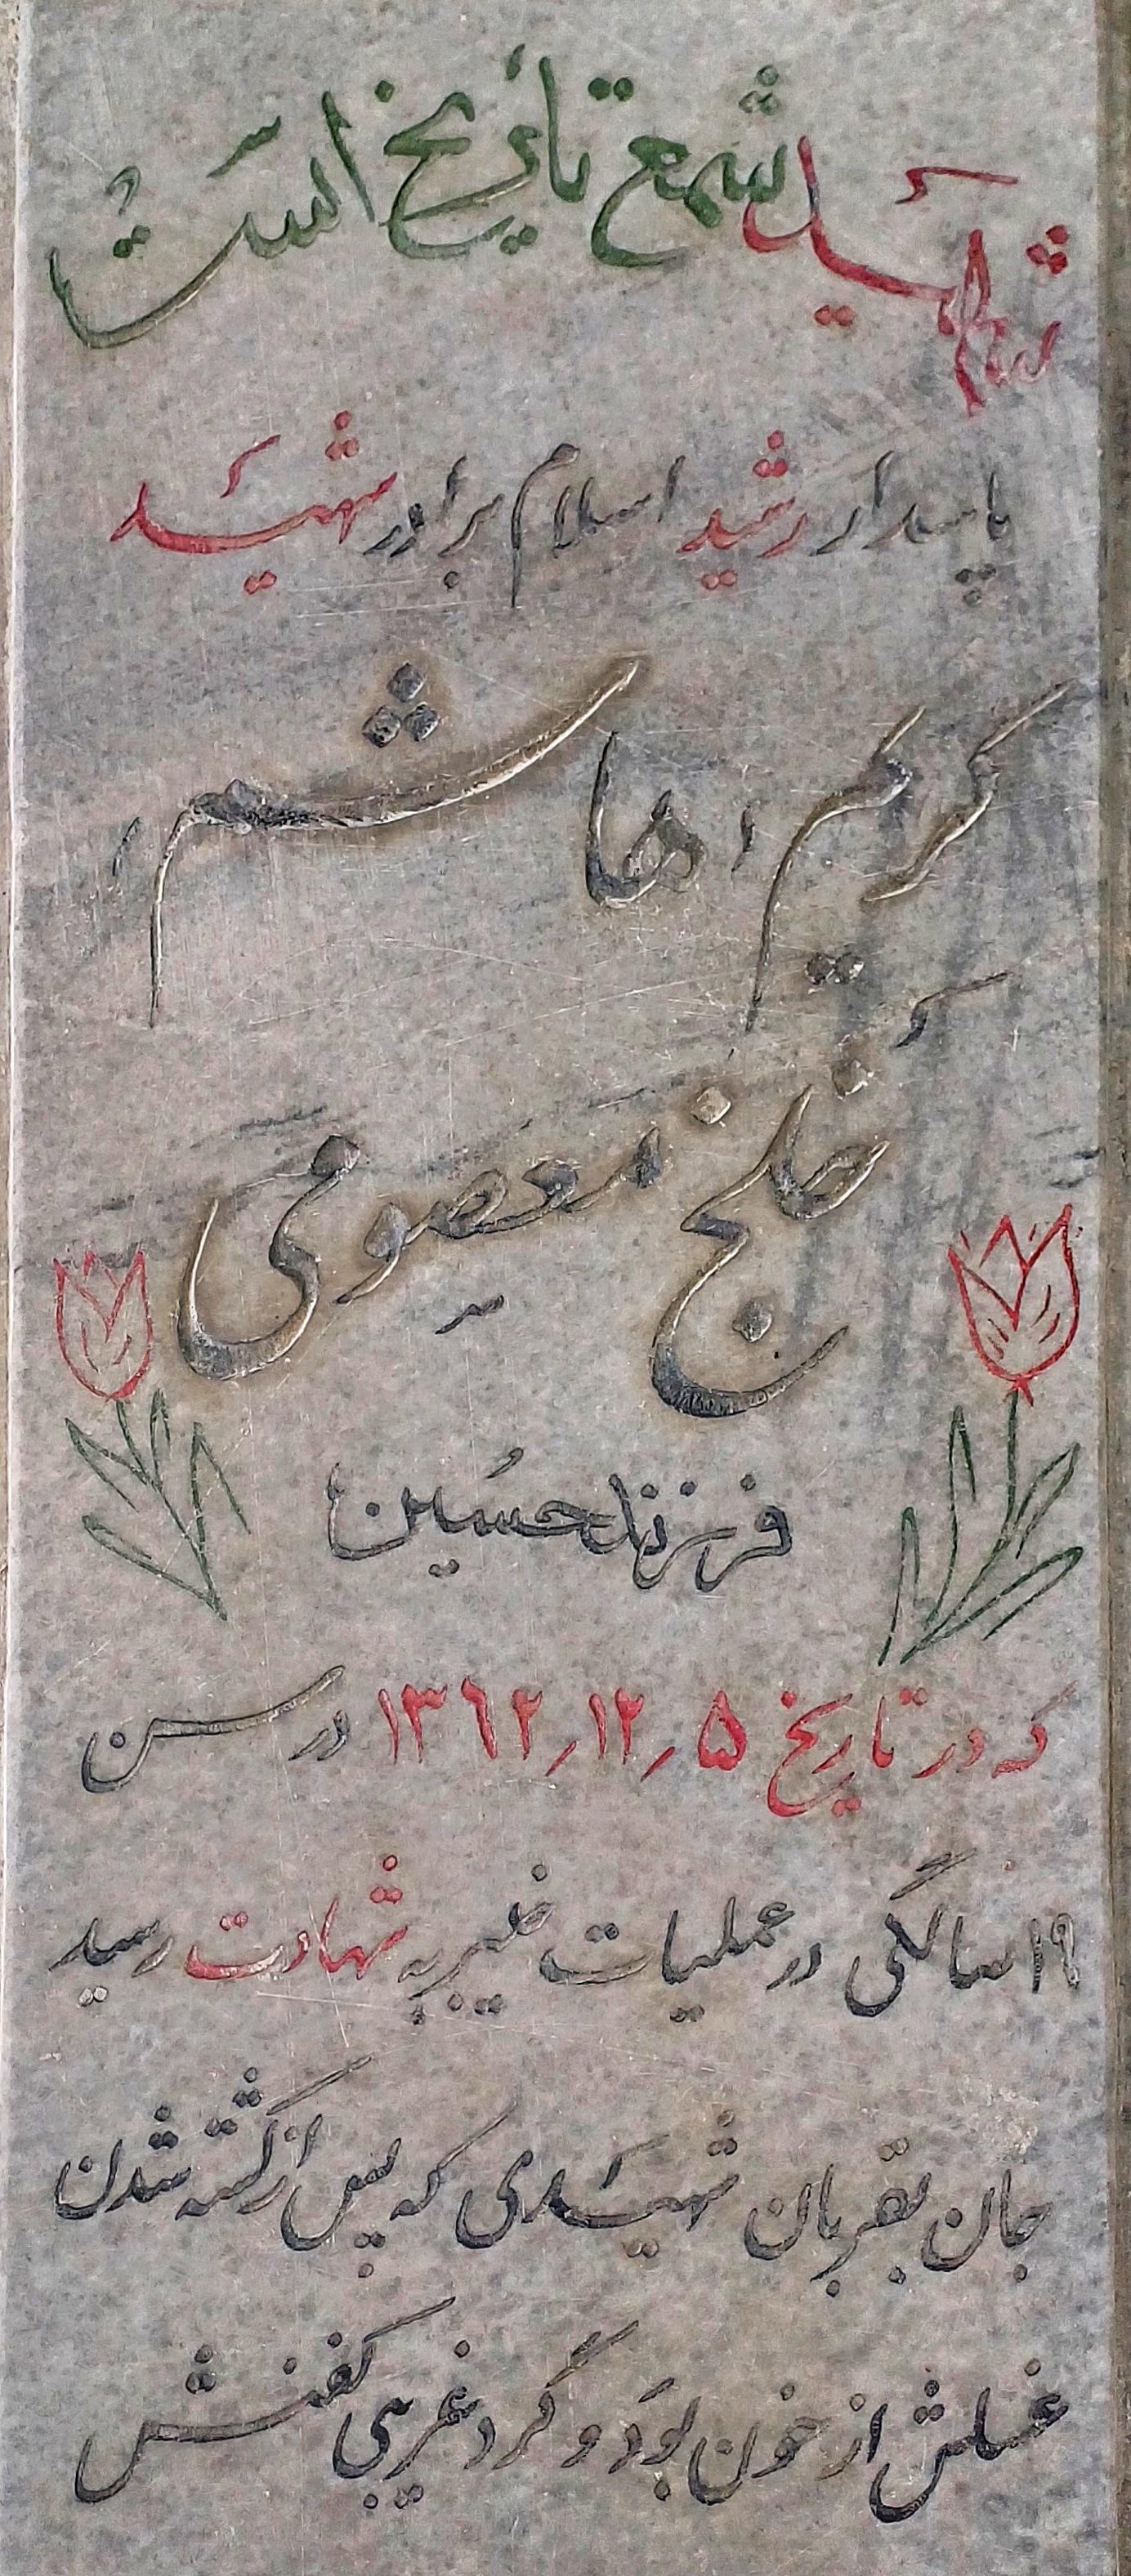 شهید شمع تاریخ است
پاسدار رشید اسلام برادر شهید
کریم، هاشم
خلج معصومی
فرزند حسین
که در تاریخ ۵٫۱۲٫۱۳۶۲ در سن
۱۹ سالگی در عملیات خیبر به شهادت رسید
جان بقربان شهیدی که پس از کشته شدن
غسلش از خون بود و گرد غریبی کفنش